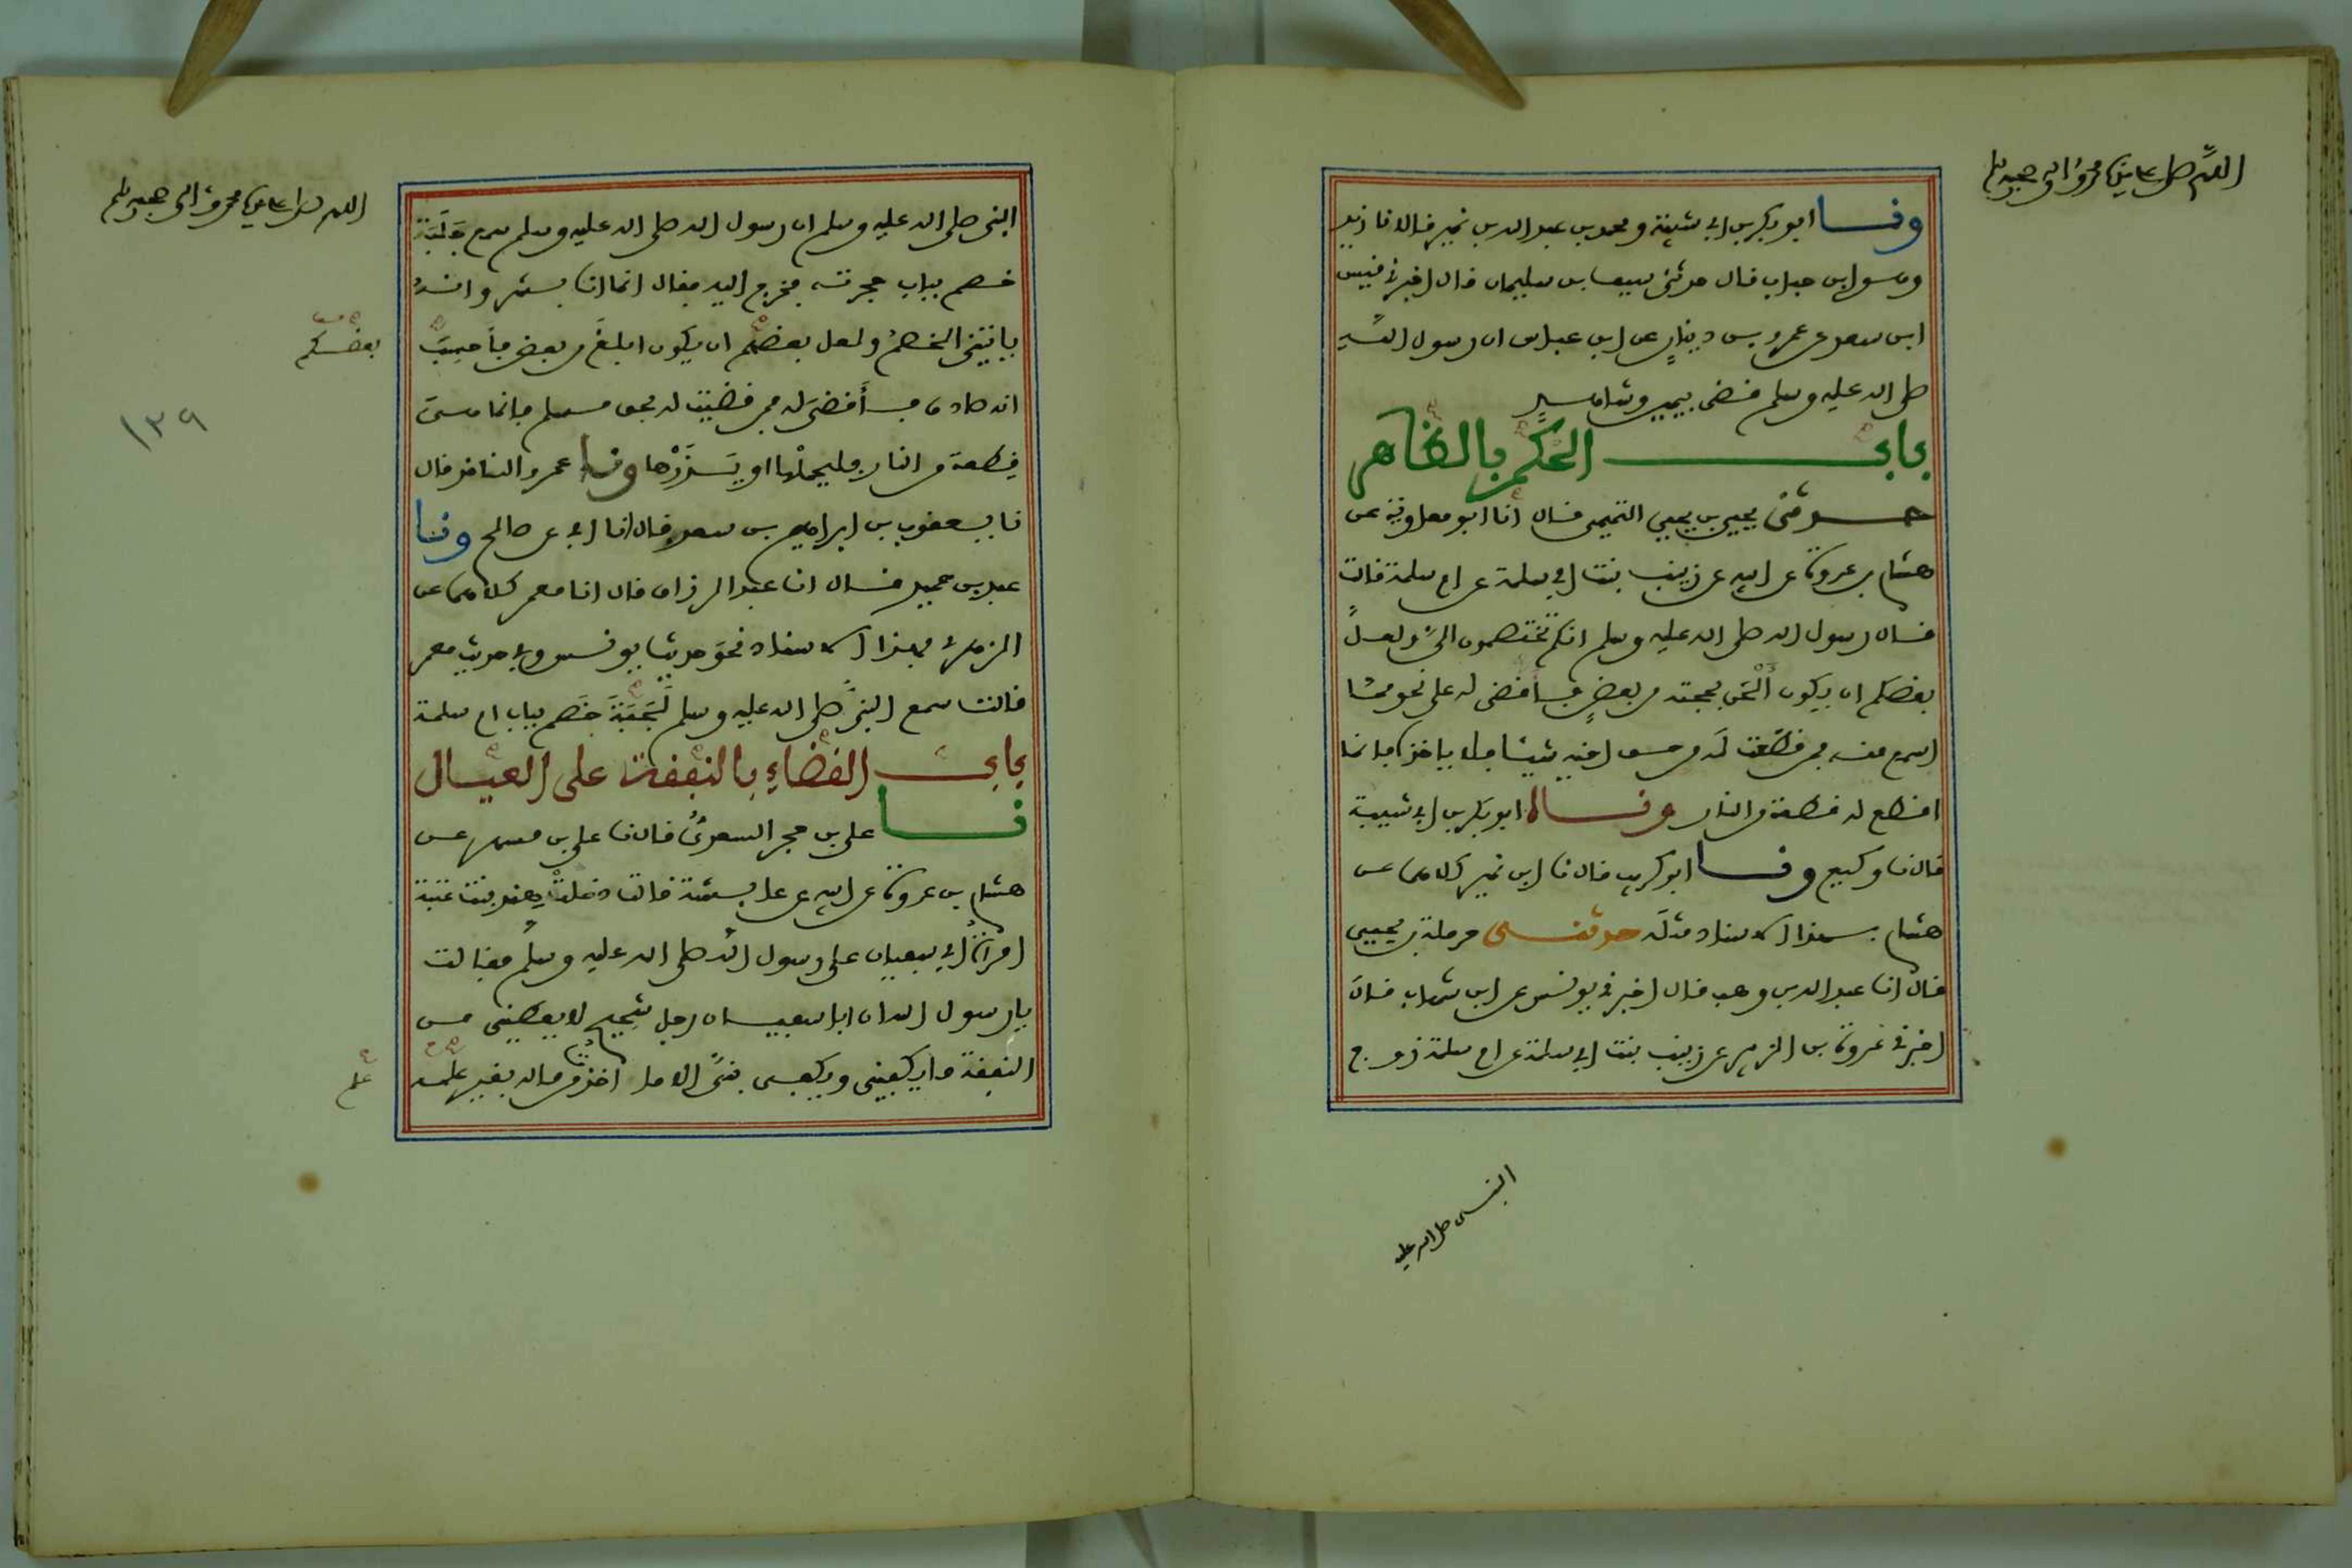 اللهم صل على سيدنا محمد وآله وصحبه وسلم
ونا ابو بكر بن ابي شيبة ومحمد بن عبد الله بن نمير قالا نا زيد
وهو ابن حباب قال حدثني سيف بن سليمان قال اخبرني قيس
ابن سعد عن عمرو بن دينار عن ابن عباس ان رسول الله
صلى الله عليه وسلم قضى بيمين وشاهد
باب الحكم بالظاهر
حدثني يحيى بن يحيى التميمي قال انا ابو معاوية عن
هشام بن عروة عن ابيه عن زينب بنت ابي سلمة عن ام سلمة قالت
قال رسول الله صلى الله عليه وسلم انكم تختصمون الي ولعل
بعضكم ان يكون ألحن بحجته من بعض فأقضي له على نحو مما
اسمع منه فمن قطعت له من حق اخيه شيئا فلا ياخذه فانما
اقطع له قطعة من النار وناه ابو بكر بن ابي شيبة
قال نا وكيع ونا ابو كريب قال نا ابن نمير كلاهما عن
هشام بهذا الاسناد مثله حدثني حرملة بن يحيى
قال انا عبد الله بن وهب قال اخبرني يونس عن ابن شهاب قال
اخبرني عروة بن الزبير عن زينب بنت ابي سلمة عن ام سلمة زوج
النبي صلى الله عليه
اللهم صل على سيدنا محمد وآله وصحبه وسلم
النبي صلى الله عليه وسلم ان رسول الله صلى الله عليه وسلم سمع جَلَبَة
خصم بباب حجرته فخرج اليه فقال انما انا بشر وانه
ياتيني الخصم ولعل بعضهم ان يكون ابلغ من بعض فأحسب
بعضكم
انه صادق فأقضي له فمن قضيت له بحق مسلم فانما هي
١٣٩
قطعة من النار فليحملها او يذرها ونا عمرو الناقد قال
نا يعقوب بن ابراهيم بن سعد قال نا ابي عن صالح ونا
عبد بن حميد قال انا عبد الرزاق قال انا معمر كلاهما عن
الزهري بهذا الاسناد نحو حديث يونس وفي حديث معمر
قالت سمع النبي صلى الله عليه وسلم لَجَبَةَ خصم بباب ام سلمة
باب القضاء بالنفقة على العيال
نا علي بن حجر السعدي قال نا علي بن مسهر عن
هشام بن عروة عن ابيه عن عايشة قالت دخلت هند بنت عتبة
امرأة ابي سفيان على رسول الله صلى الله عليه وسلم فقالت
يا رسول الله ان ابا سفيان رجل شحيح لا يعطيني من
النفقة ما يكفيني ويكفي بني الا ما اخذت من ماله بغير علمه
علم